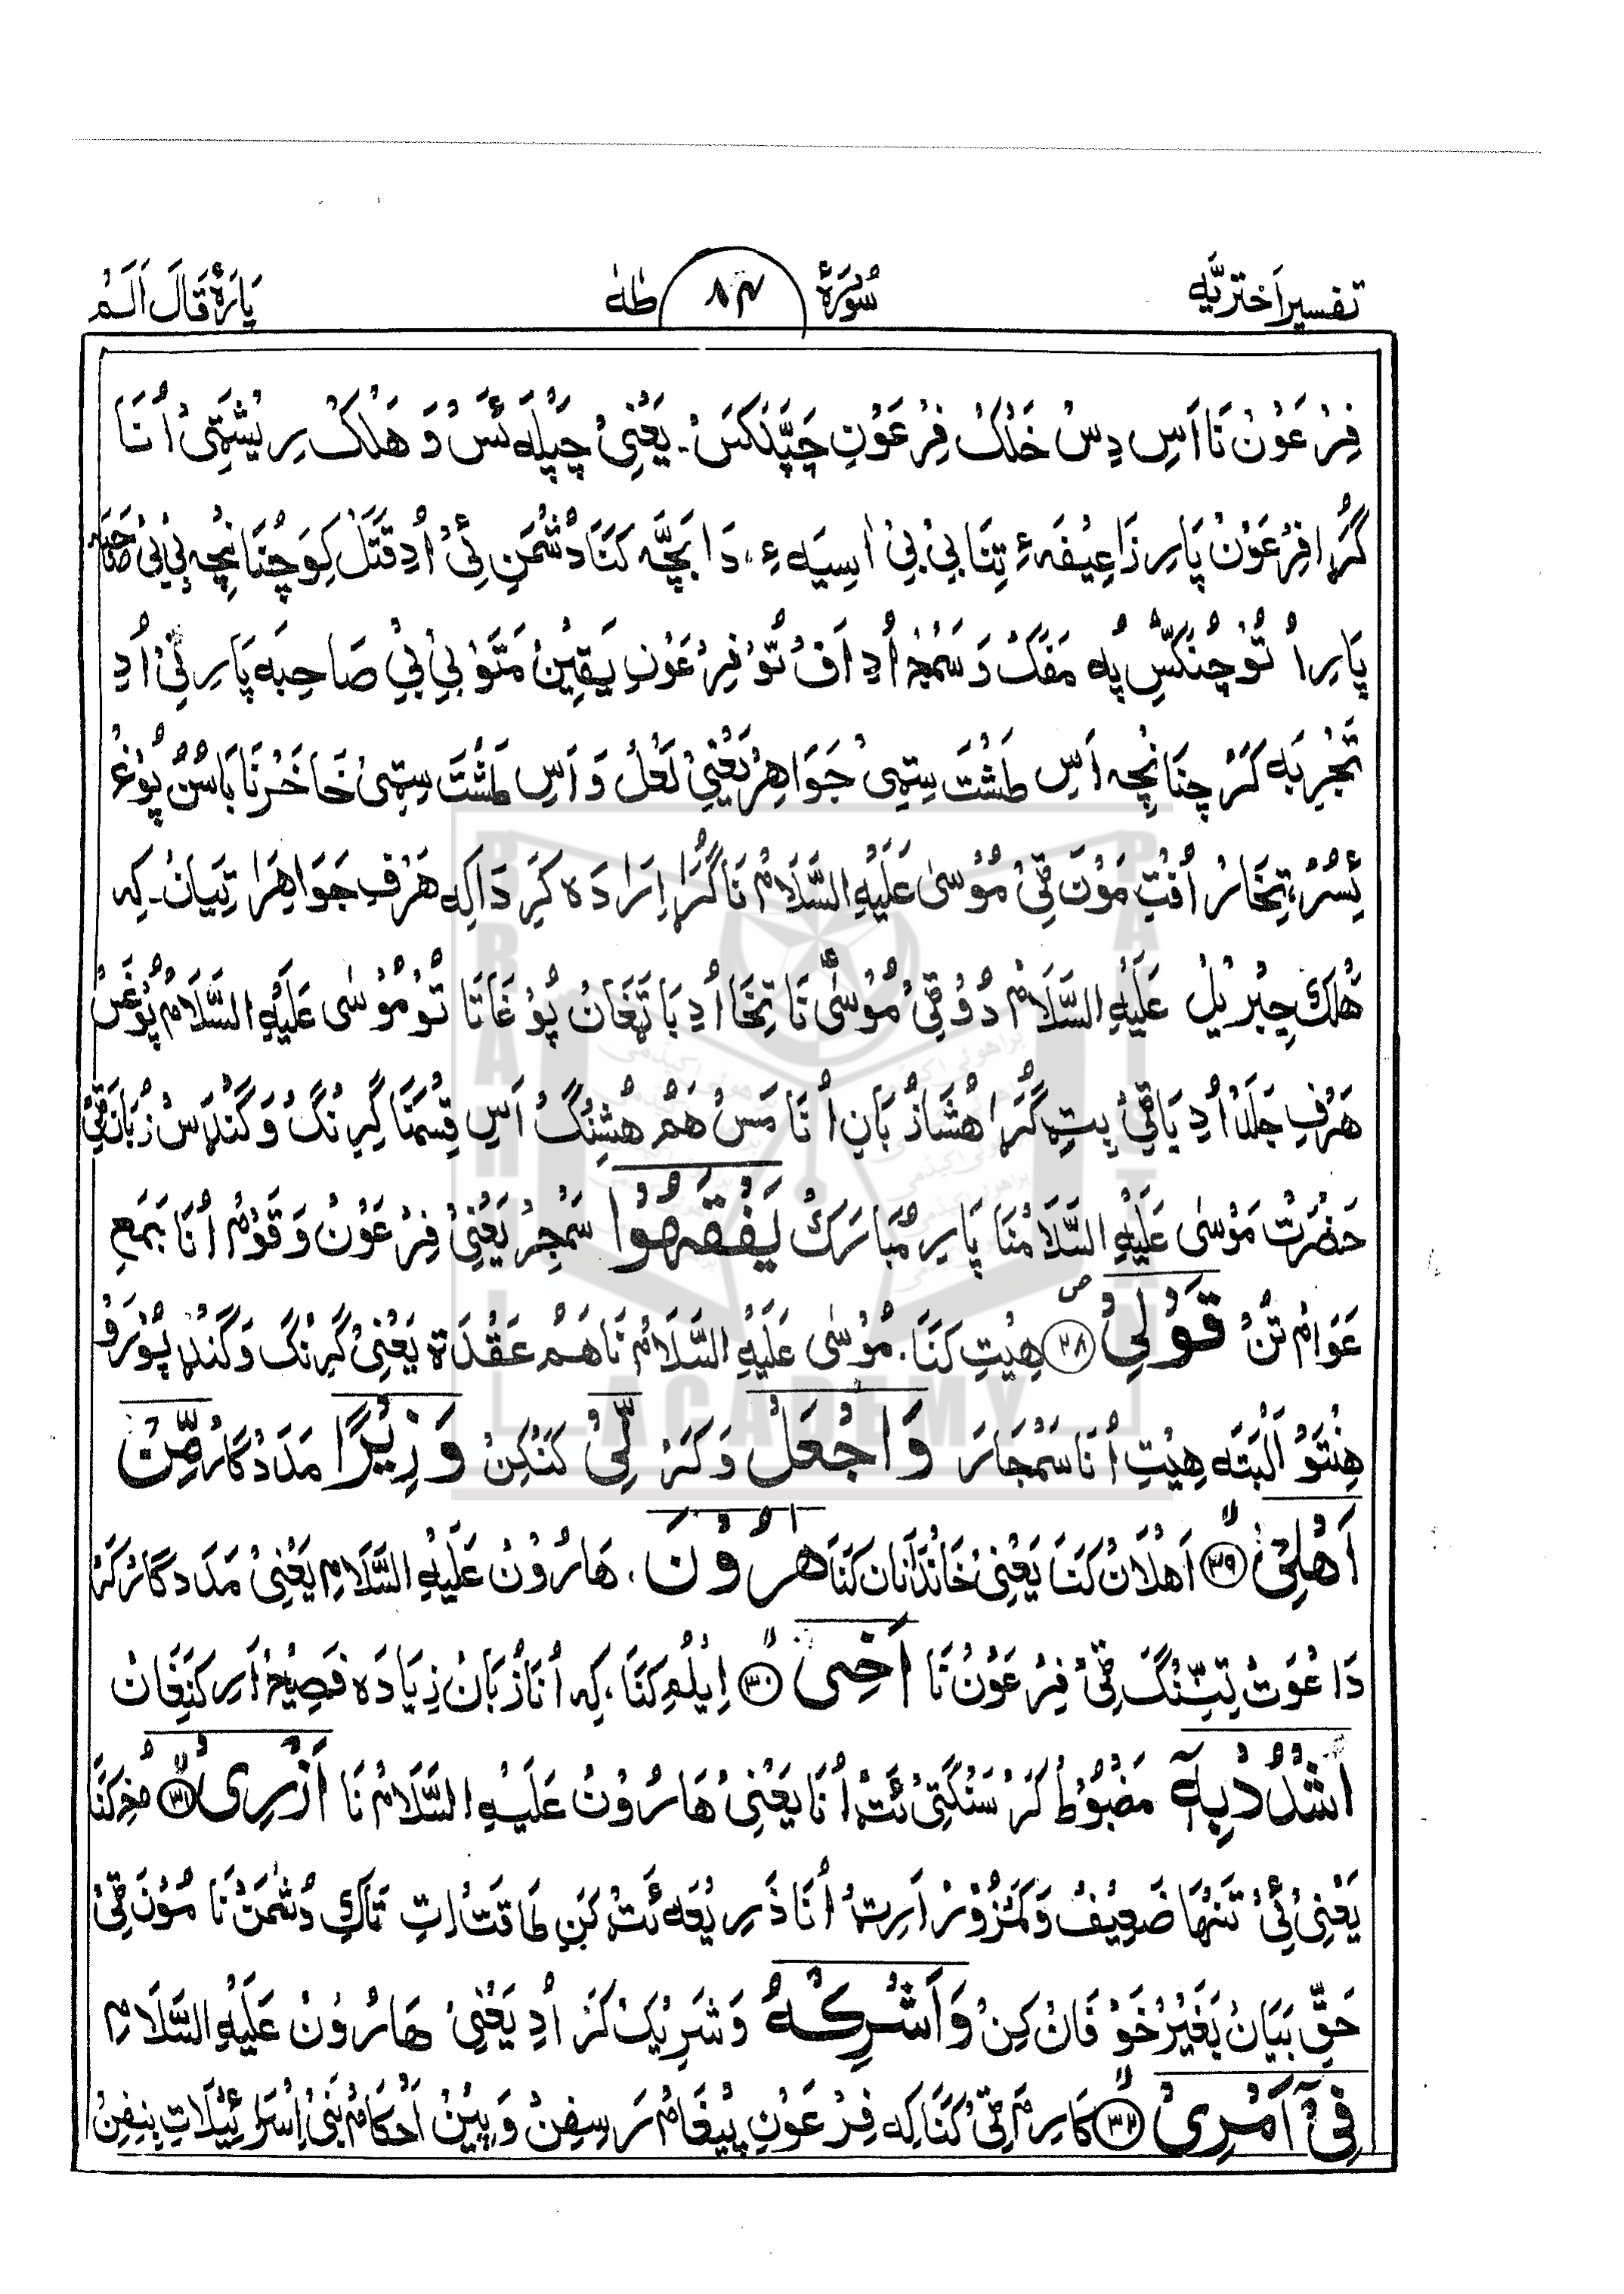 تفسیر اَختریَّه سُورَۂ ۸۴ طٰهٰ پارَۂ قَالَ اَلَمْ
فِرْعَوْنْ نَا اَسِ دِسْ خَلْکْ فِرْعَوْنِ چَپَّنْکَسْ. یَعْنِیْ چَپْلَه ئَسْ وَ هَلْکْ رِیْشَتِیْ اُنَا
گُرَا فِرْعَوْنْ پَارِ ذَاعِیْفَه ءِ تِنَا بِیْ بِیْ اٰسِیَه ءِ، دَا بَچَّه کَنَا دُشْمَنِ نِیْ اُدِ قَتَلْ کِوَ چُنَانِچِه بِیْ بِیْ صَاحِبَه
پَارِ اُ تُوْ چُنَکَّسِ پُه مَفَکْ وَ سَمْجِ اُدِ اَفْ تُوْ فِرْعَوْنِ یَقِیْنْ مَتَوْ بِیْ بِیْ صَاحِبَه پَارِ نِیْ اُدِ
تَجْرِبَه کَرْ چِنَانْچِه اَسِ طَشْتَ سِتِیْ جَوَاهِرْ یَعْنِیْ لَعْلْ وَ اَسِ طَشْتَ سِتِیْ خَاخَرْنَا بَاسُنْ پُوْغْ
ئَسُرْ، تِخَارْ اُفْتِ مَوْنَ قِیْ مُوْسٰی عَلَیْهِ السَّلَامْ نَا گُرَا اِرَادَه کَرِ دَاکِه هَرْفِ جَوَاهِرَا تِیَانْ۔ کِه
هُلْکْ جِبْرِیْلْ عَلَیْهِ السَّلَامْ دُوْ قِیْ مُوْسٰی نَا تِخَا اُدِ بَا تِغَانْ پُوْغَاتَا تُوْ مُوْسٰی عَلَیْهِ السَّلَامْ پُوْغَسْ
هَرْفِ جَلَدْ اُدِ بَاقِیْ تِتِ گُرَا هُشَا زُبَانِ اُنَا مَسْ هَمْ هُشِنْگْ اَسِ قِسْمَنَا گِرِنْگْ وَ گَنْڈَسْ زُبَانْ قِیْ
حَضْرَتْ مُوْسٰی عَلَیْهِ السَّلَامْنَا پَارِ مُبَارَکْ یَفْقَهُوْا سَمْجِرْ یَعْنِیْ فِرْعَوْنْ وَ قَوْمْ اُنَا بَمَعِ
عَوَامْ تَنْ قَوْلِیْ ۲۸ ص هِیْتِ کَنَا. مُوْسٰی عَلَیْهِ السَّلَامْ نَا هَمْ عَقْدَة یَعْنِیْ گِرِنْگْ وَ گَنْڈ پُوْرَفْ
هِنْتَوْ اَلْبَتَه هِیْتِ اُنَا سَمْجَارَ وَاجْعَلْ وَ کَرْ لِّیْ کَنْکِنْ وَزِیْرًا مَدَدْگَارْ مِّنْ
اَهْلِیْ ۲۹ لا اَهْلَانْ کَنَا یَعْنِیْ خَانْدَانَانْ کَنَا هٰرُوْنَ. هَارُوْنْ عَلَیْهِ السَّلَامِ یَعْنِیْ مَدَدگَارْ کَرْ
دَا عُوَتْ تِنِنْگَ قِیْ فِرْعَوْنْ نَا اَخِی ۳۰ لا اِیْلُمِ کَنَا، کِه اُنَا زُبَانْ زِیَادَه فَصِیْحْ اَرِ کَنِغَانْ
اشْدُدْ بِهٖٓ مَضْبُوْطْ کَرْ سَنْگَتِیْ ئَتْ اُنَا یَعْنِیْ هَارُوْنْ عَلَیْهِ السَّلَامْ نَا اَزْرِیْ ۳۱ لا مُخِ کَنَا
یَعْنِیْ نِیْ تَنْهَا ضَعِیْفْ وَ کَمْزُوْرْ اَرِتْ اُنَا ذَرِیْعَه ئَتْ کَنِ طَاقَتْ اِتِ تَاکِ دُشْمَنْ نَا مُوْنَ قِیْ
حَقِّ بَیَانْ بَغَیْرْ خَوْفَانْ کِنْ وَاَشْرِکْهُ وَ شَرِیْکْ کَرْ اُدِ یَعْنِیْ هَارُوْنْ عَلَیْهِ السَّلَامِ
فِیْٓ اَمْرِیْ ۳۲ لا کَارِمْ قِیْ کَنَا کِه فِرْعَوْنِ پیْغَامْ رَسِفِنْ وَ پِیْنْ اَحْکَامْ بَنِیْ اِسْرَائِیْلَاتِ بِنِفِنْ